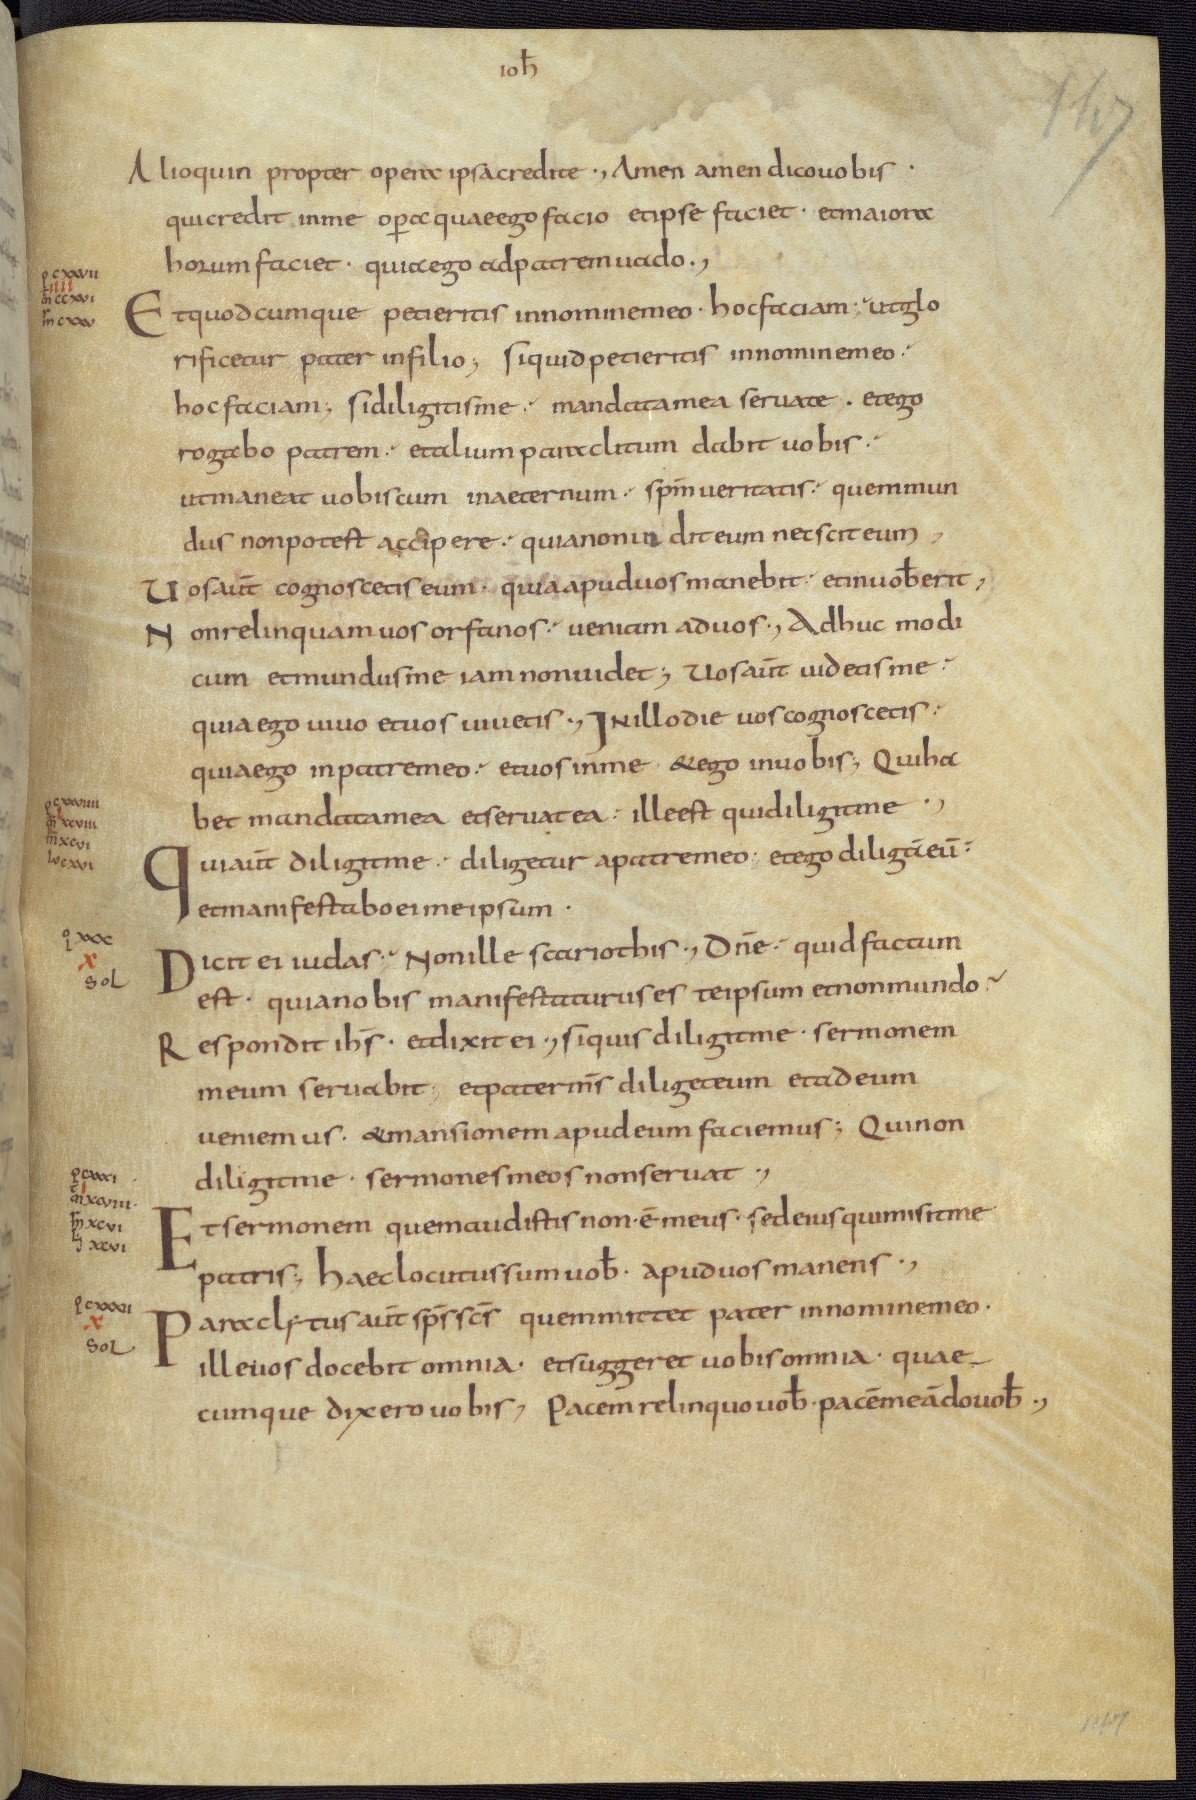 ioh̄
147
Alioquin propter opera ipsa credite ., Amen amen dico vobis ·
qui credit in me op̄a quae ego facio et ipse faciet · et maiora
horum faciet · quia ego ad patrem vado .,
Et quodcumque petieritis in nomine meo · hoc faciam : ut glo
rificetur pater in filio ; si quid petieritis in nomine meo :
hoc faciam ; si diligitis me : mandata mea servate . et ego
rogabo patrem : et alium paraclitum dabit vobis :
ut maneat vobiscum in aeternum : sp̄m veritatis : quem mun
dus non potest accipere : quia non videt eum nec scit eum ,
Vos aūt cognoscetis eum · quia apud vos manebit : et in vob̄ erit ,
Non relinquam vos orfanos : veniam ad vos ., Adhuc modi
cum et mundus me iam non videt ; Vos aūt videtis me :
quia ego vivo et vos vivetis ., In illo die vos cognoscetis :
quia ego in patre meo : et vos in me & ego in vobis ; Qui ha
bet mandata mea et servat ea : ille est qui diligit me .,
Qui aūt diligit me : diligetur a patre meo : et ego diligā eū :
et manifestabo ei me ipsum ·
Dicit ei iudas : Non ille scariothis ., Dn̄e : quid factum
est · quia nobis manifestaturus es te ipsum et non mundo ?
Respondit ih̄s · et dixit ei ., si quis diligit me · sermonem
meum servabit ; et pater m̄s diliget eum et ad eum
veniemus . & mansionem apud eum faciemus ; Qui non
diligit me · sermones meos non servat .,
Et sermonem quem audistis non · ē meus · sed eius qui misit me
patris ; haec locutus sum vob̄ · apud vos manens .,
Paraclytus aūt sp̄s sc̄s quem mittet pater in nomine meo ·
ille vos docebit omnia · et suggeret vobis omnia · quae
cumque dixero vobis , Pacem relinquo vob̄ · pacē meā do vob̄ .,
x
sol
x
sol
147